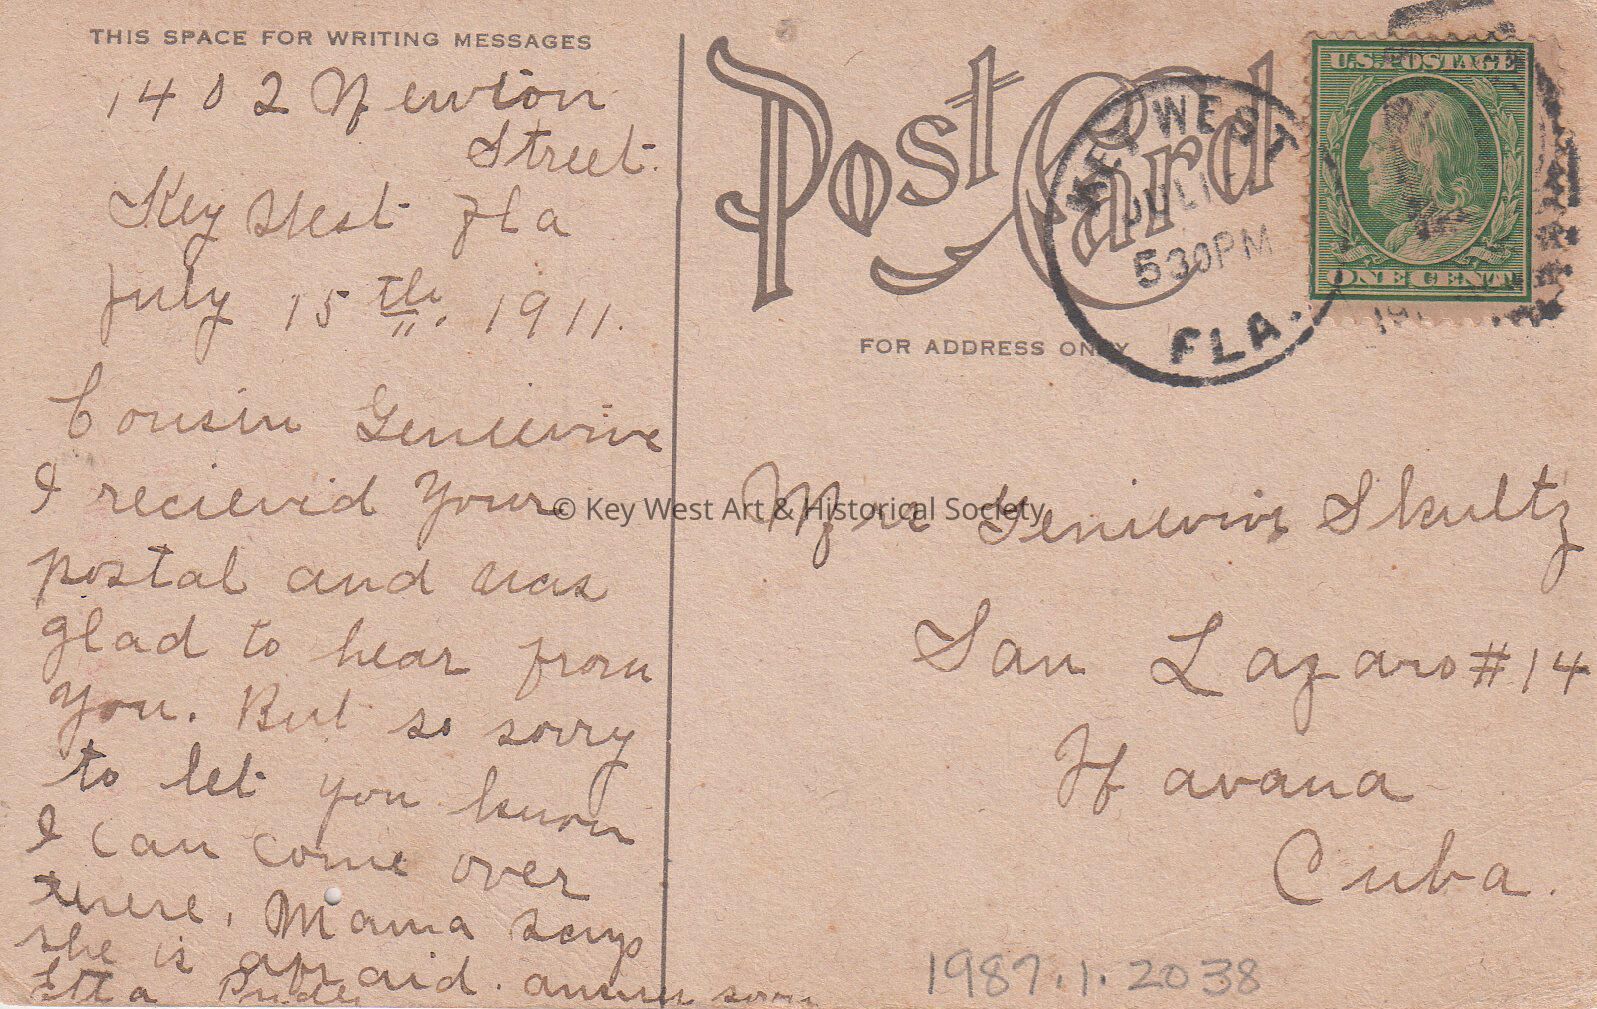 THIS SPACE FOR WRITING MESSAGES
1402 Newton
Street.
Key West Fla
July 15th. 1911.
Cousin Genievive
I recievid your
postal and was
glad to hear from
you. But so sorry
to let you know
I can come over
there. Mama says
she is afraid. answer soon
Etta
Post Card
FOR ADDRESS ONLY
KEY WEST
JUL
530PM
FLA.
U.S. POSTAGE
ONE CENT
Genievive Skultz
San Lazaro #14
Havana
Cuba.
1987.1.2038
© Key West Art & Historical Society